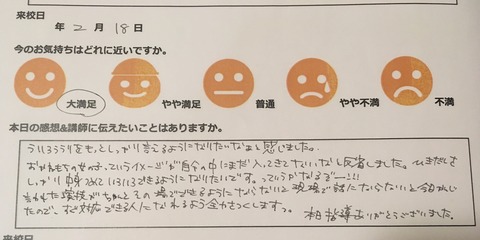 来校日
年 2月 18日
今のお気持ちはどれに近いですか。
大満足 やや満足 普通 やや不満 不満
本日の感想&講師に伝えたいことはありますか。
ういろううりをもっとしっかり言えるようになりたいなぁと感じました。
おかねもちの女の子、っていうイメージが自分の中にまだ入ってきてないなと反省しました。
しっかり いろいろできるようになりたいです。っていうかなるぞー!!!
言われた事が ちゃんとその場でできるようにならないと現場で話にならないと
たので、 対応できる人になれるよう全力をつくしますっ。本日も指導ありがとうございました。
来校日